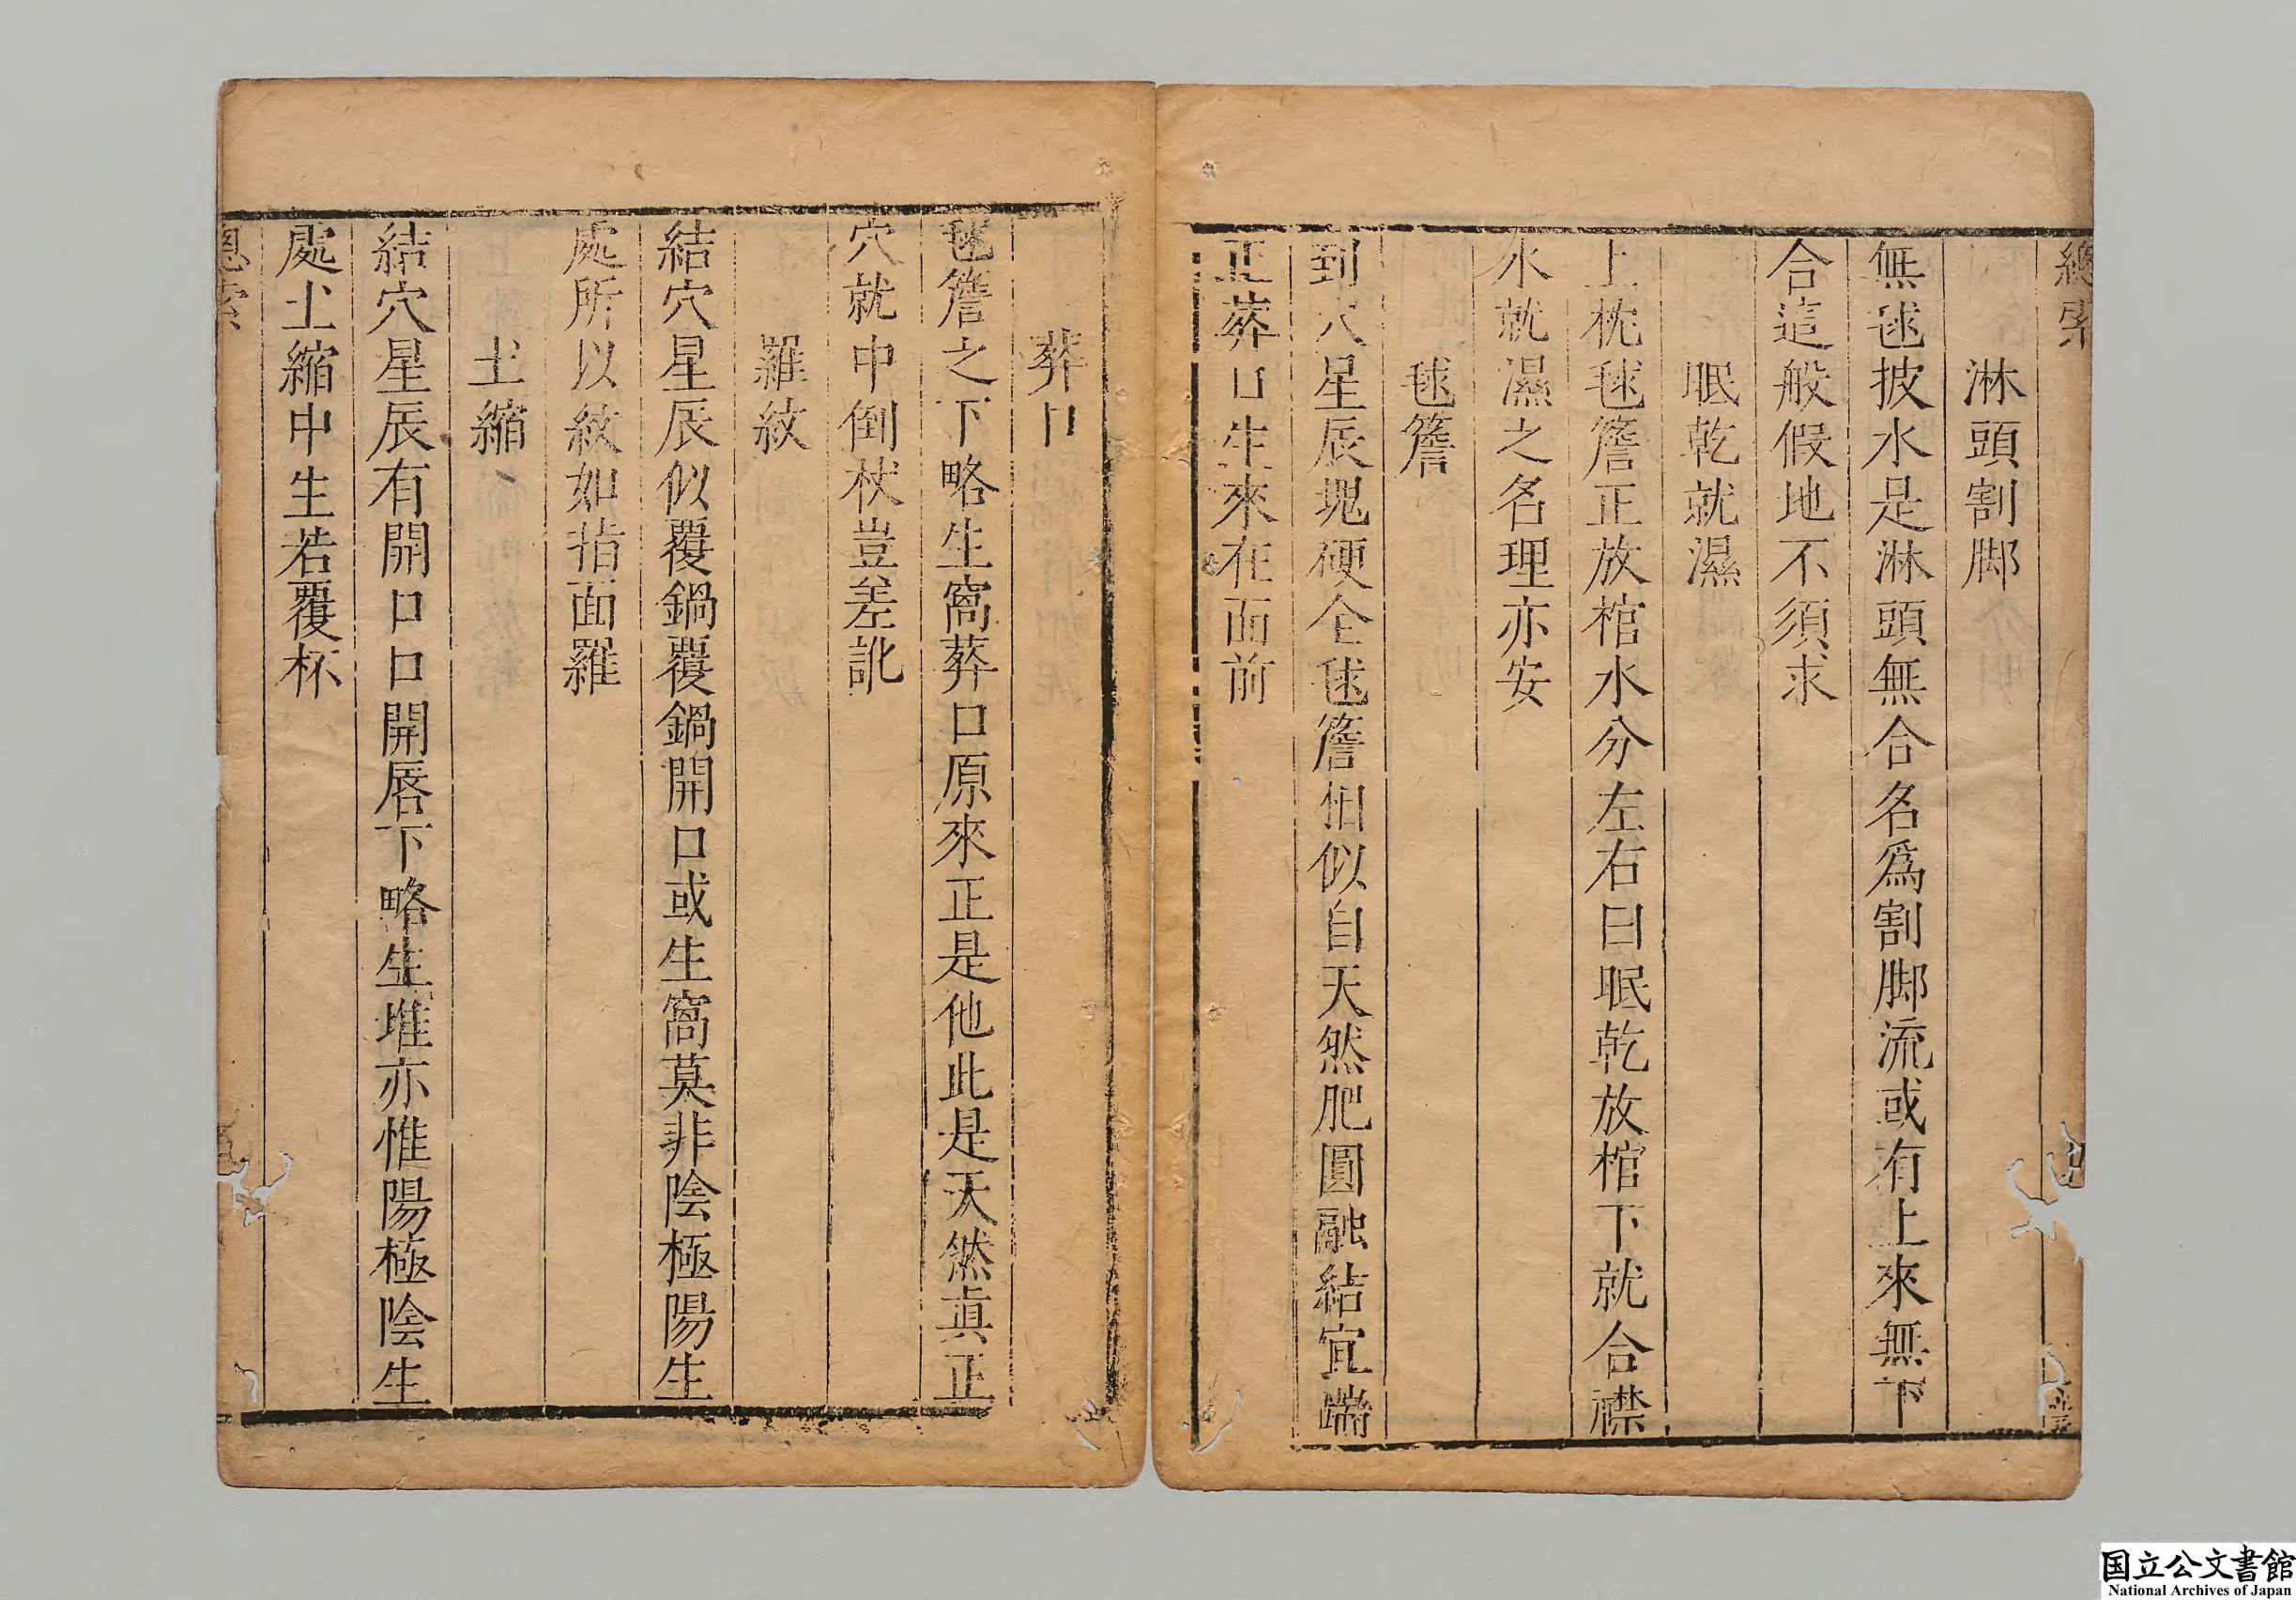 總索
淋頭割脚
無毬披水是淋頭無合名爲割脚流或有上來無下
合這般假地不須求
眠乾就濕
上枕毬簷正放棺水分左右曰眠乾放棺下就合襟
水就濕之名理亦安
毬簷
到穴星辰塊硬全毬簷怕似自天然肥圓融結宜端
正葬口生來在面前
葬口
毬簷之下略生窩葬口原來正是他此是天然真正
穴就中倒杖豈差訛
羅紋
結穴星辰似覆鍋覆鍋開口或生窩莫非陰極陽生
處所以紋如指面羅
土縮
結穴星辰有開口口開唇下略生堆亦惟陽極陰生
處土縮中生若覆杯
總索
国立公文書館
National Archives of Japan